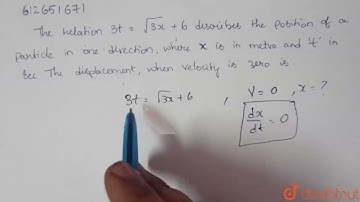 612651671
The relation 3t = √3x + 6 describes the position of a
particle in one direction, where x is in metre and 't' in
sec The displacement, when velocity is zero is
3t = √3x + 6 , V = 0 , x = ?
dx/dt = 0
doubtnut